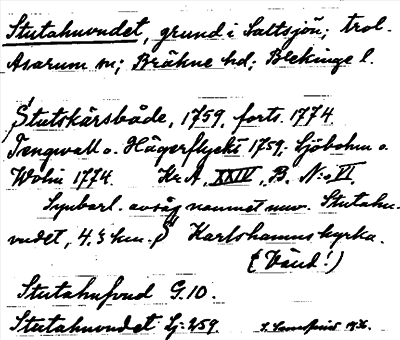 Stutahuvudet, grund i Saltsjön; trol.
Asarum sn; Bräkne hd; Blekinge l.
Stutskärsbåde, 1759, forts. 1774.
Tengwall o. Hägerflyckt 1759. Sjöbohm o.
Wolin 1774. Kr. A. XXIV, B. N:o VI.
Synbarl. avsåg namnet nuv. Stutahu-
vudet, 4.3 km. Karlshamns kyrka.
(Vänd!)
Stutahufvud G. 10.
Stutahuvudet Sj: 259.